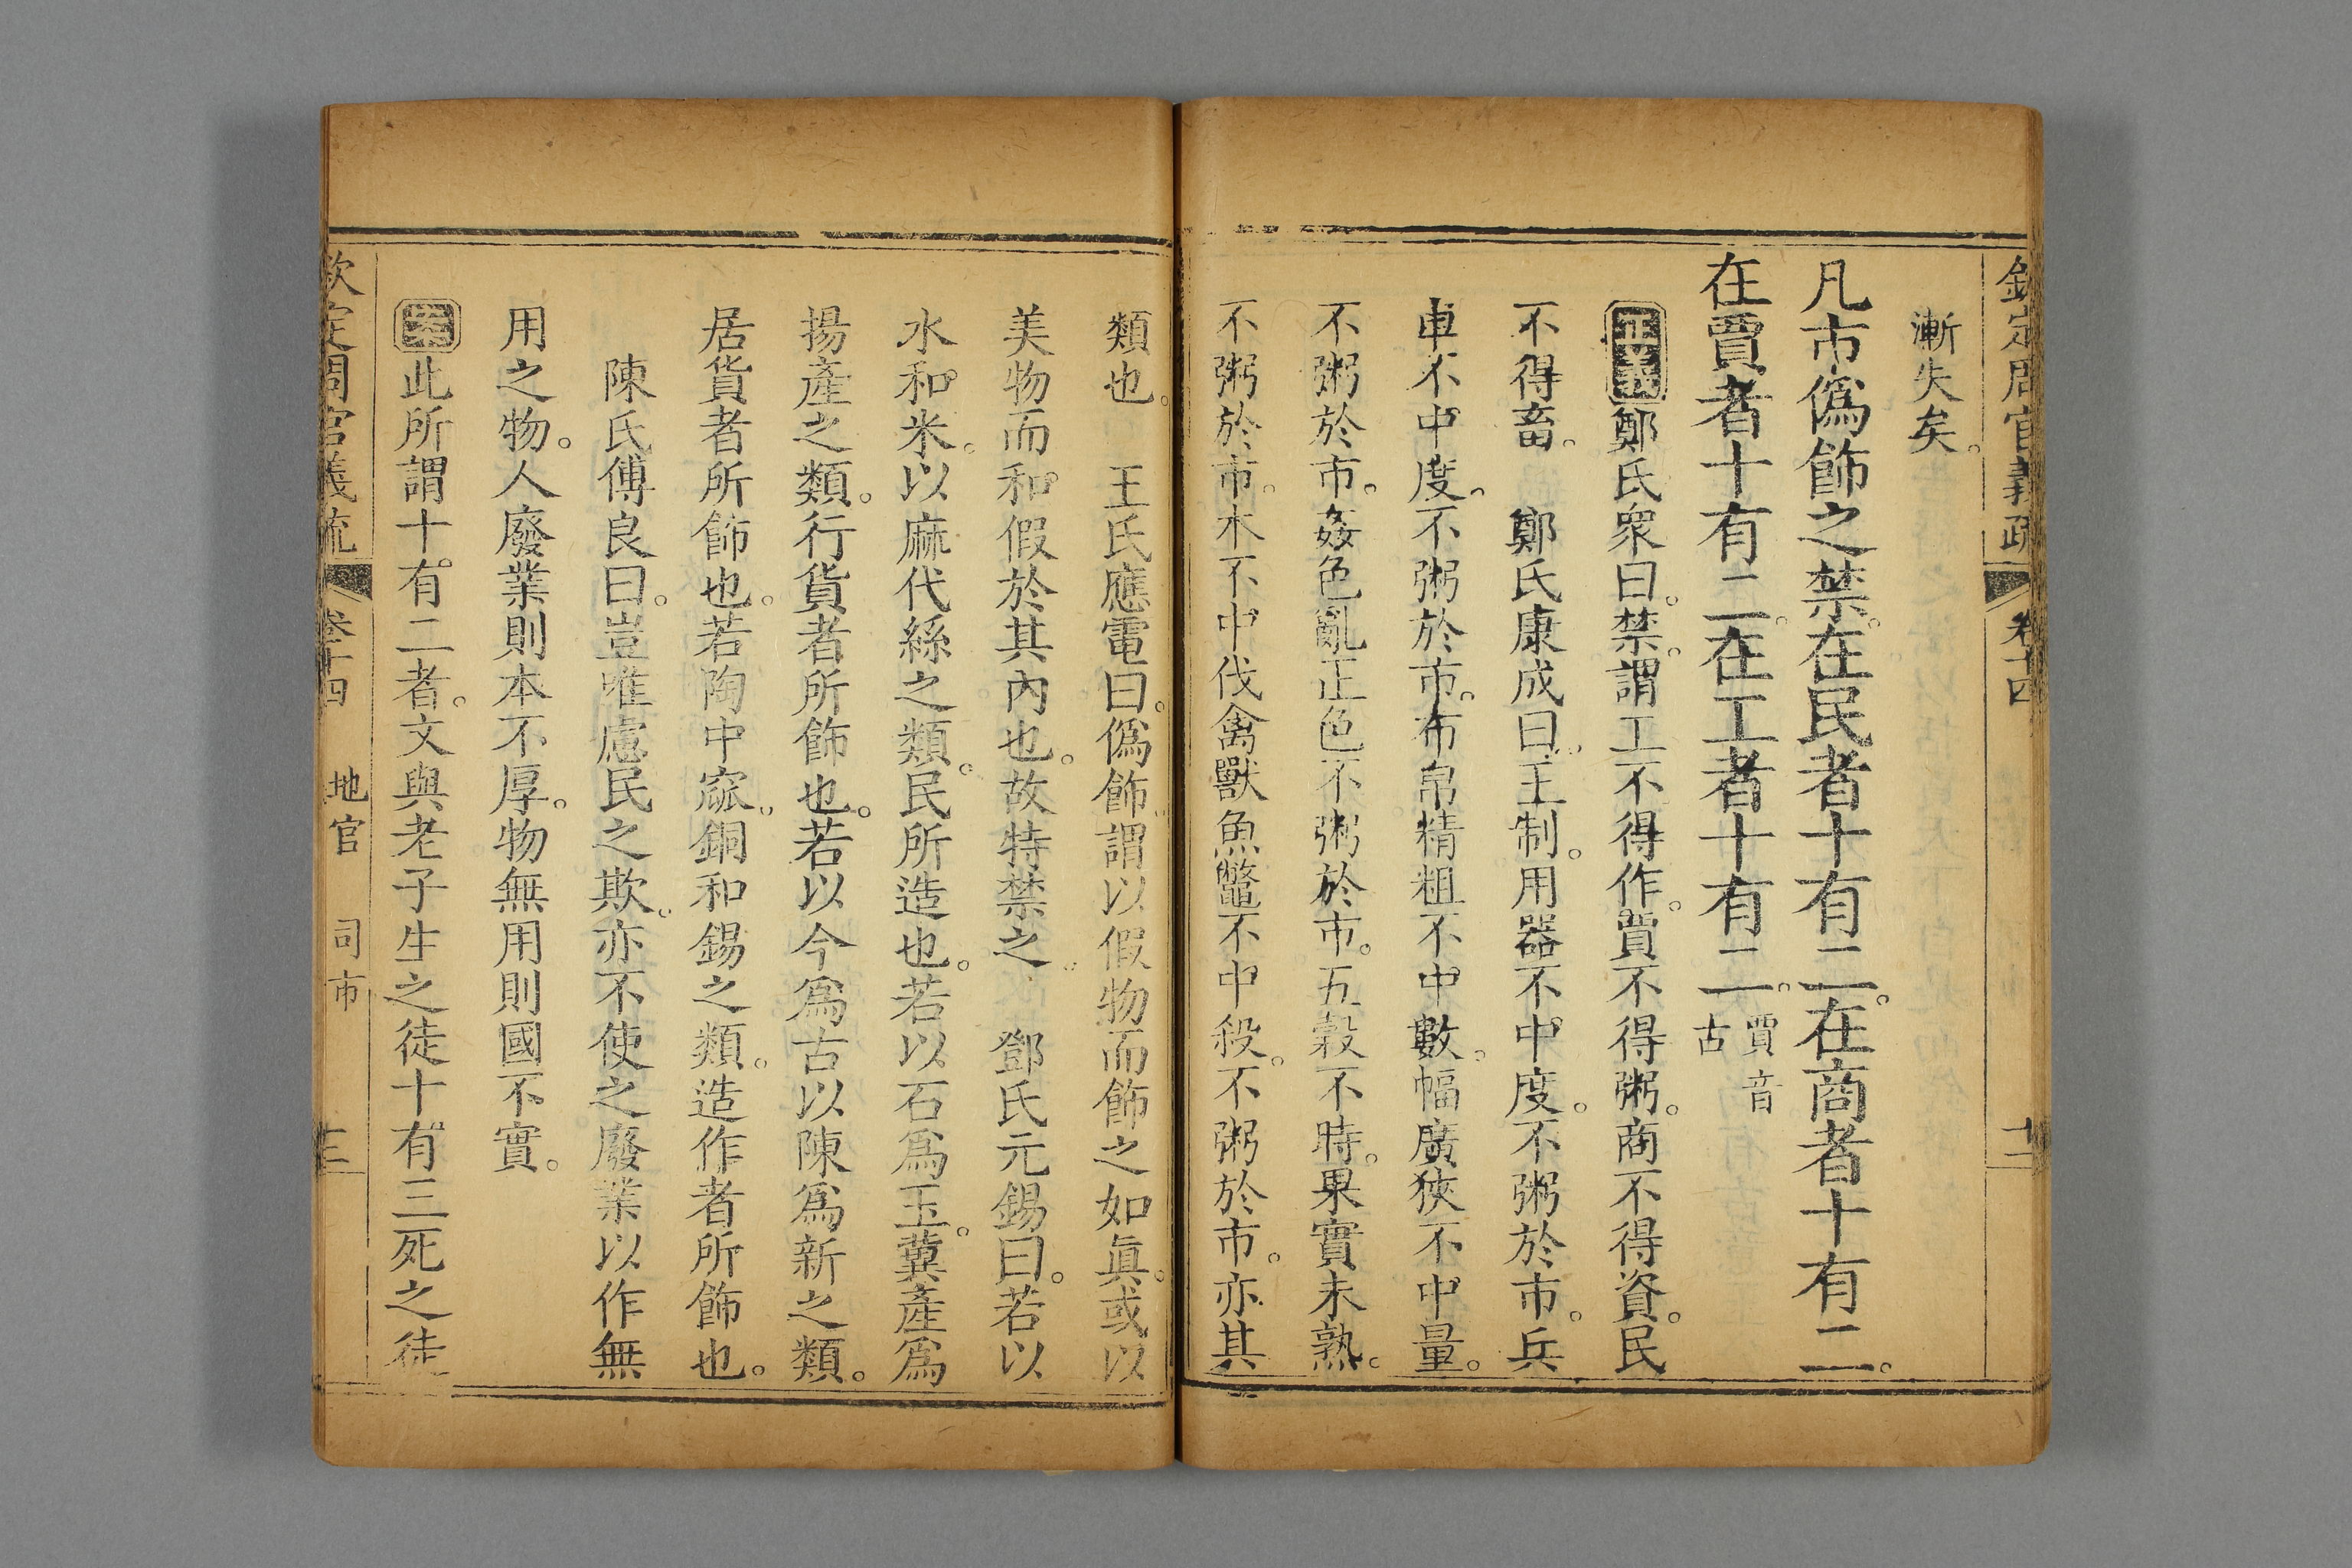 欽定周官義疏 卷十四
漸失矣。
凡市僞飾之禁。在民者十有二。在商者十有二。
在賈者十有二。在工者十有二。賈音古
正義鄭氏衆曰。禁。謂工不得作。賈不得粥。商不得資。民
不得畜。 鄭氏康成曰。王制。用器不中度。不粥於市。兵
車不中度。不粥於市。布帛精粗不中數。幅廣狹不中量。
不粥於市。姦色亂正色不粥於市。五穀不時。果實未熟。
不粥於市。木不中伐禽獸魚鼈不中殺。不粥於市。亦其
類也。 王氏應電曰。僞飾。謂以假物而飾之如眞。或以
美物而和假於其內也。故特禁之。 鄧氏元錫曰。若以
水和米。以麻代絲之類。民所造也。若以石爲玉。冀產爲
揚產之類。行貨者所飾也。若以今爲古以陳爲新之類。
居貨者所飾也。若陶中窳。銅和錫之類。造作者所飾也。
陳氏傅良曰。豈唯慮民之欺。亦不使之廢業以作無
用之物。人廢業則本不厚。物無用則國不實。
此所謂十有二者。文與老子生之徒十有三死之徒
欽定周官義疏 卷十四 地官 司市